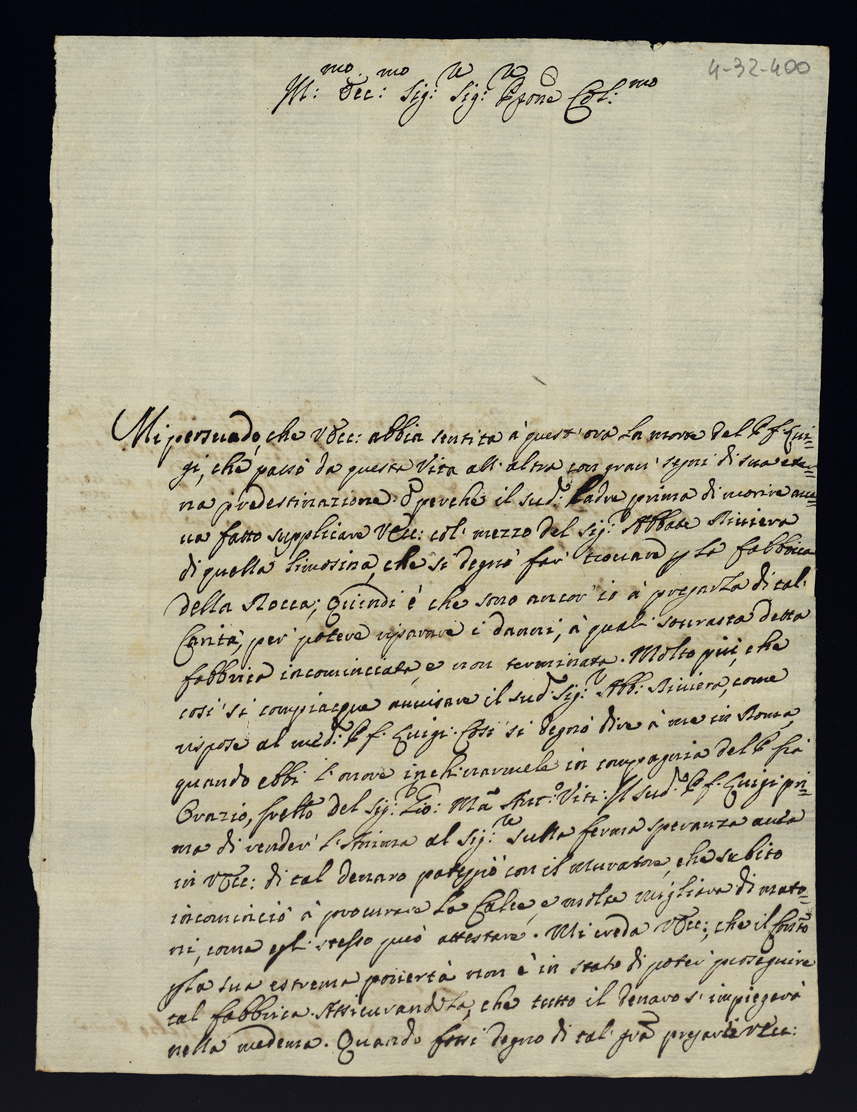 4-32-400
Ill:mo Ecc:mo Sig:r Sig:r Pron Col:mo
Mi persuado, che V Ecc: abbia sentita à quest'ora la morte del P. f. Lui-
gi, che passò da questa Vita all'altra con gran' segni di sua eter-
na predestinazione. E perche il sud.o Padre prima di morire ave-
va fatto supplicare V Ecc: col' mezzo del Sig.r Abbate Riviera
di quella limosina, che si degnò far' trovare p la fabbrica
della Rocca; Quindi è che sono ancor' io à pregarLa di tal'
Carità, per' potere riparare i danni, à quali sovrasta detta
fabbrica incominciata, e non terminata. Molto più, che
così si compiacque avvisare il sud.o Sig.r Abb: Riviera, come
rispose al med.o P. f. Luigi. Così si degnò dire à me in Roma,
quando ebbi l'onore inchinarmele in compagnia del P. frà
Orazio, frello del Sig.r Gio: Ma Ant.o Viti. Il sud.o P. f. Luigi pri-
ma di render' l'Anima al Sig.re sulla ferma speranza avuta
in V Ecc: di tal denaro patteggiò con il Muratore, che subito
incominciò à procurare la Calce, e molte migliara di mato-
ni, come egli stesso può attestare. Mi creda V Ecc:, che il Conto
p la sua estrema povertà non è in stato di poter' proseguire
tal fabbrica. AssicurandoLa, che tutto il denaro s'impiegarà
nella medema. Quando fossi degno di tal' gra pregarei V Ecc: